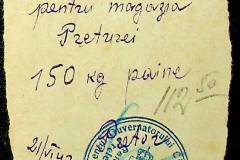 pentru magazia
Preturei
150 kg paine
112 50
Guvernatorului